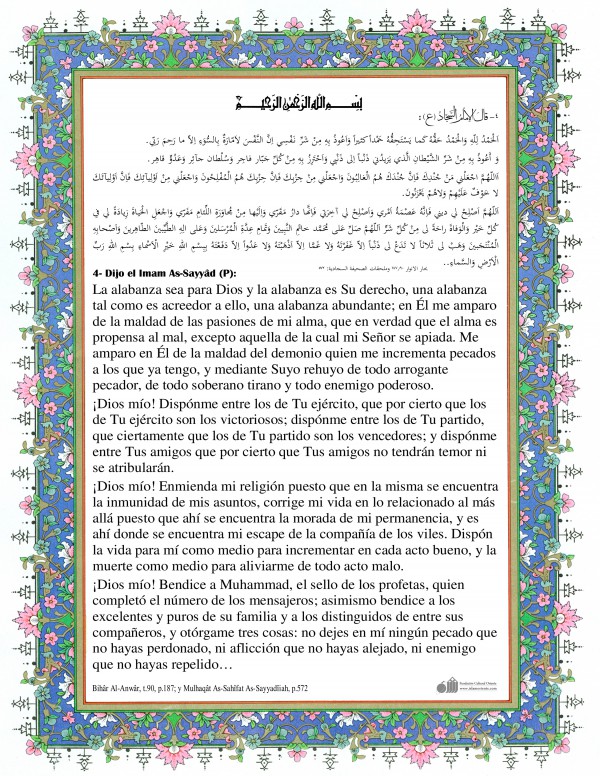 بِسْمِ اللهِ الرَّحْمٰنِ الرَّحِيمِ
٤- قال الإمام السجاد (ع):
اَلْحَمْدُ لِلّٰهِ وَالْحَمْدُ حَقُّهُ كَما يَسْتَحِقُّهُ حَمْداً كَثيراً وَأَعُوذُ بِهِ مِنْ شَرِّ نَفْسِي إِنَّ النَّفْسَ لَأَمّارَةٌ بِالسُّوءِ إِلاّ ما رَحِمَ رَبِّي.
وَ أَعُوذُ بِهِ مِنْ شَرِّ الشَّيْطانِ الَّذي يَزيدُني ذَنْباً اِلى ذَنْبي وَاَحْتَرِزُ بِهِ مِنْ كُلِّ جَبّارٍ فاجِرٍ وَسُلْطانٍ جآئِرٍ وَعَدُوٍّ قاهِرٍ.
اَللّهُمَّ اجْعَلْني مِنْ جُنْدِكَ فَإِنَّ جُنْدَكَ هُمُ الْغالِبُونَ وَاجْعَلْني مِنْ حِزْبِكَ فَإِنَّ حِزْبَكَ هُمُ الْمُفْلِحُونَ وَاجْعَلْني مِنْ أَوْلِيآئِكَ فَإِنَّ أَوْلِيآئَكَ
لا خَوْفٌ عَلَيْهِمْ وَلاهُمْ يَحْزَنُونَ.
اَللّهُمَّ أَصْلِحْ لي ديني فَإِنَّهُ عِصْمَةُ أَمْري وَأَصْلِحْ لي آخِرَتي فَإِنَّها دارُ مَقَرّي وَإِلَيْها مِنْ مُجاوَرَةِ اللِّئامِ مَفَرّي وَاجْعَلِ الْحَياةَ زِيادَةً لي في
كُلِّ خَيْرٍ وَالْوَفاةَ راحَةً لي مِنْ كُلِّ شَرٍّ اَللّهُمَّ صَلِّ عَلى مُحَمَّدٍ خاتَمِ النَّبِيّينَ وَتَمامِ عِدَّةِ الْمُرْسَلينَ وَعَلى آلِهِ الطَّيِّبينَ الطّاهِرينَ وَأَصْحابِهِ
الْمُنْتَجَبينَ وَهَبْ لي ثَلاثاً لا تَدَعْ لي ذَنْباً إِلاّ غَفَرْتَهُ وَلا غَمّاً إِلاّ أَذْهَبْتَهُ وَلا عَدُوّاً إِلاّ دَفَعْتَهُ بِبِسْمِ اللهِ خَيْرِ الْأَسْماءِ بِسْمِ اللهِ رَبِّ
الْأَرْضِ وَالسَّماءِ..
بحار الانوار وملحقات الصحيفة السجادية:
4- Dijo el Imam As-Sayyâd (P):
La alabanza sea para Dios y la alabanza es Su derecho, una alabanza
tal como es acreedor a ello, una alabanza abundante; en Él me amparo
de la maldad de las pasiones de mi alma, que en verdad que el alma es
propensa al mal, excepto aquella de la cual mi Señor se apiada. Me
amparo en Él de la maldad del demonio quien me incrementa pecados
a los que ya tengo, y mediante Suyo rehuyo de todo arrogante
pecador, de todo soberano tirano y todo enemigo poderoso.
¡Dios mío! Dispónme entre los de Tu ejército, que por cierto que los
de Tu ejército son los victoriosos; dispónme entre los de Tu partido,
que ciertamente que los de Tu partido son los vencedores; y dispónme
entre Tus amigos que por cierto que Tus amigos no tendrán temor ni
se atribularán.
¡Dios mío! Enmienda mi religión puesto que en la misma se encuentra
la inmunidad de mis asuntos, corrige mi vida en lo relacionado al más
allá puesto que ahí se encuentra la morada de mi permanencia, y es
ahí donde se encuentra mi escape de la compañía de los viles. Dispón
la vida para mí como medio para incrementar en cada acto bueno, y la
muerte como medio para aliviarme de todo acto malo.
¡Dios mío! Bendice a Muhammad, el sello de los profetas, quien
completó el número de los mensajeros; asimismo bendice a los
excelentes y puros de su familia y a los distinguidos de entre sus
compañeros, y otórgame tres cosas: no dejes en mí ningún pecado que
no hayas perdonado, ni aflicción que no hayas alejado, ni enemigo
que no hayas repelido…
Bihâr Al-Anwâr, t.90, p.187; y Mulhaqât As-Sahîfat As-Sayyadîiah, p.572
Fundación Cultural Oriente
www.islamoriente.com